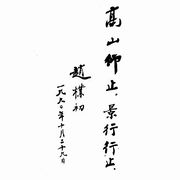 高山仰止，景行行止，
趙樸初
一九九〇年十月二十九日